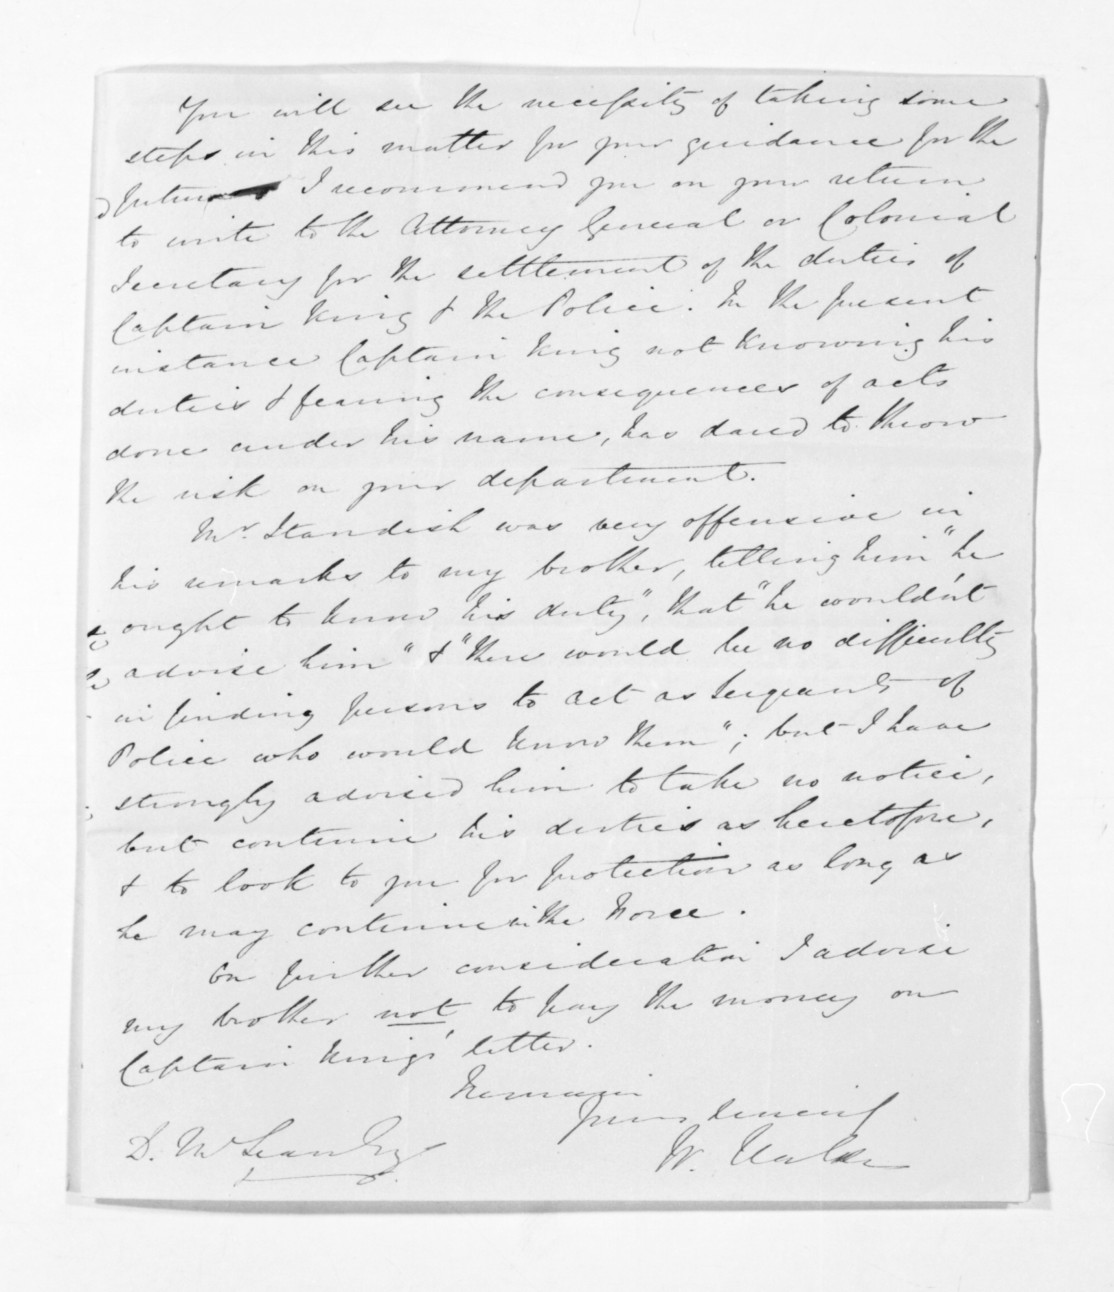 You will see the necessity of taking some
steps in this matter for your guidance for the
future I recommend you on your return
to write to the Attorney General or Colonial
Secretary for the settlement of the duties of
Captain King & the Police. In the present
instance Captain King not knowing his
duties & fearing the consequences of acts
done under his name, has dared to throw
the risk on your department.
Mr. Standish was very offensive in
his remarks to my brother, telling him "he
ought to know his duty", that "he wouldn't
advise him" & "there would be no difficulty
in finding persons to act as Sergeants of
Police who would know them"; but I have
strongly advised him to take no notice,
but continue his duties as heretofore,
& to look to you for protection as long as
he may continue in the Force.
On further consideration I advise
my brother not to pay the money on
Captain King's letter.
Remain
Yours sincerely
W. Halse
D. McLean Esq